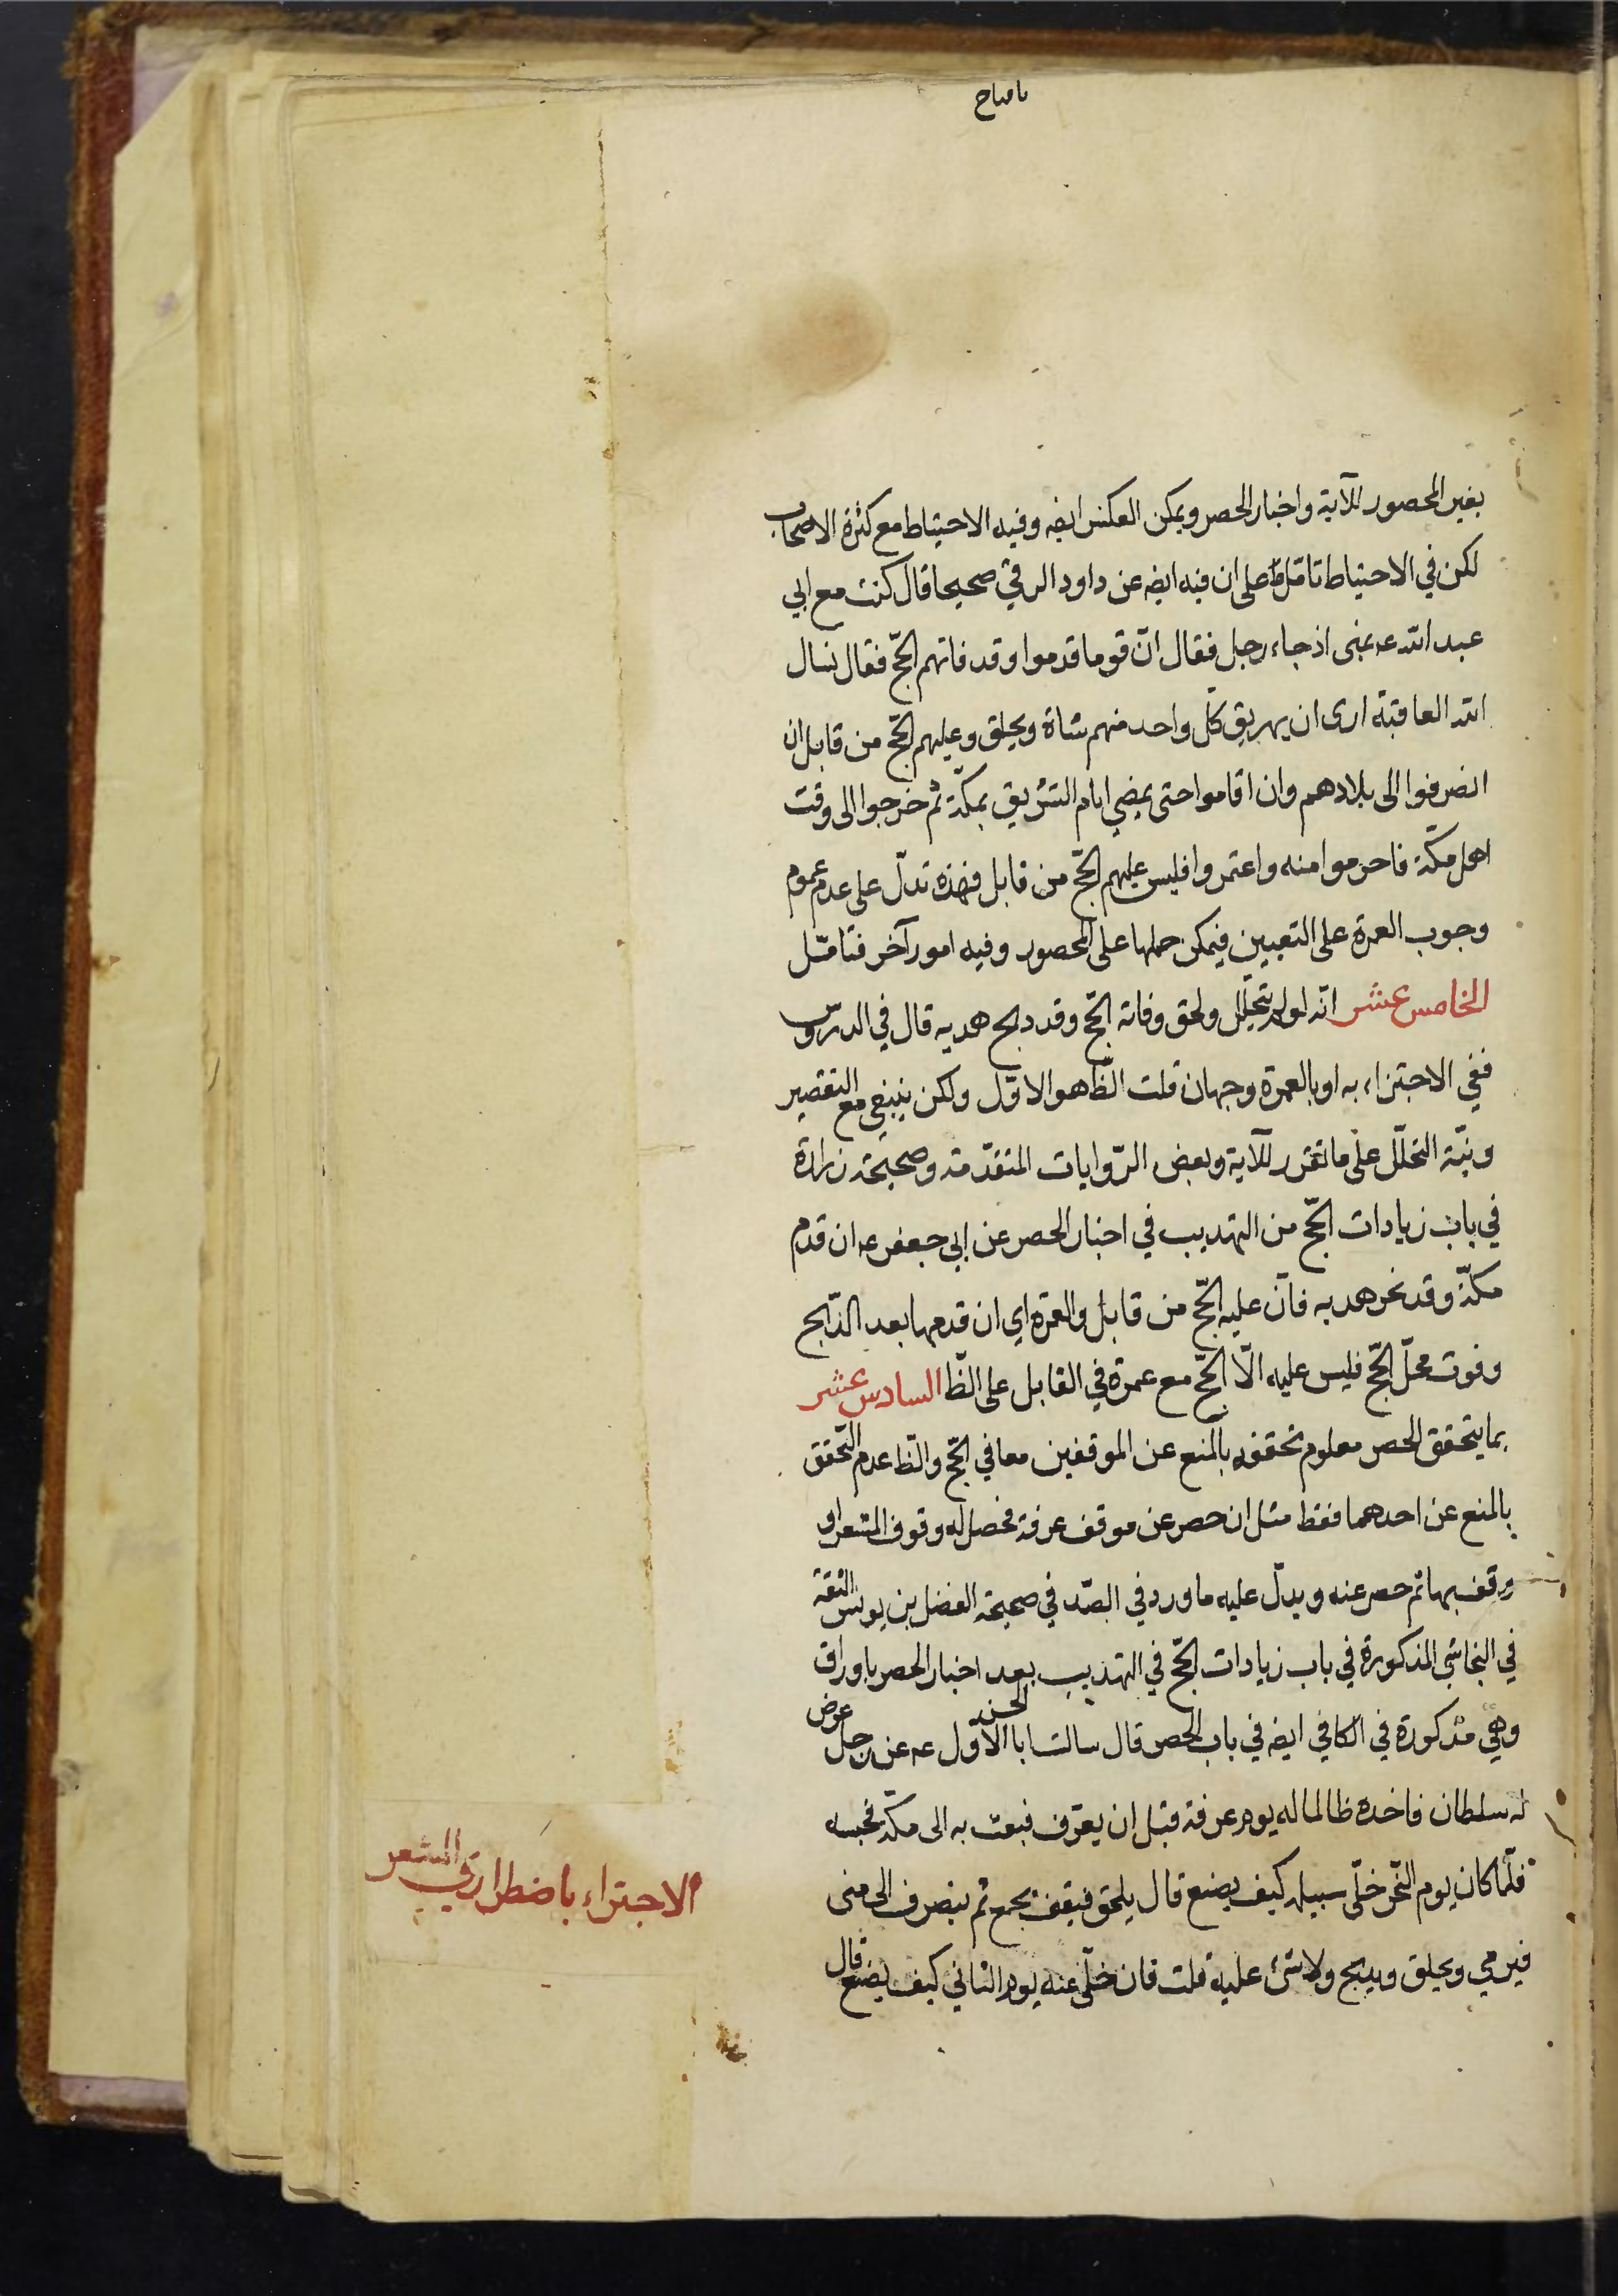 بغير المحصور للآية واخبار الحصر ويمكن العكس ايضه وفيه الاحتياط مع كثرة الاصحاب
لكن في الاحتياط تامّل على ان فيه ايضه عن داود الرقي صحيحا قال كنت مع ابي
عبد الله عه بمنى اذ جاء رجل فقال انّ قوما قدموا وقد فاتهم الحجّ فقال نسال
الله العافية ارى ان يهريق كلّ واحد منهم شاة ويحلق وعليهم الحجّ من قابل ان
انصرفوا الى بلادهم وان اقاموا حتى يمضي ايام التشريق بمكّة ثم خرجوا الى وقت
اهل مكّة فاحرموا منه واعتمروا فليس عليهم الحجّ من قابل فهذه تدلّ على عدم عموم
وجوب العمرة على التعيين فيمكن حملها على المحصور وفيه امور آخر فتامّل
الخامس عشر انّه لو لم يتحلّل ولحق وفاته الحجّ وقد ذبح هديه قال في الدروس
ففي الاجتزاء به او بالعمرة وجهان قلت الظّاهو الاوّل ولكن ينبغي مع التقصير
ونيّة التحلّل على ما تقرر للآية وبعض الرّوايات المتقدّمة وصحيحة زرارة
في باب زيادات الحجّ من التهذيب في اخبار الحصر عن ابي جعفر عه ان قدم
مكّة وقد نحر هديه فانّ عليه الحجّ من قابل والعمرة اي ان قدمها بعد الذّبح
وفوت محلّ الحجّ فليس عليه الّا الحجّ مع عمرة في القابل على الظّا السادس عشر
بما يتحقق الحصر معلوم تحققه بالمنع عن الموقفين معا في الحجّ والظّا عدم التّحقق
بالمنع عن احدهما فقط مثل ان حصر عن موقف عرفة فحصل له وقوف المشعر او
وقف بها ثم حصر عنه ويدلّ عليه ما ورد في الصّد في صحيحة الفضل بن يونس الثقة
في النجاشي المذكورة في باب زيادات الحجّ في التهذيب بعد اخبار الحصر باوراق
وهي مذكورة في الكافي ايضه في باب الحصر قال سالت ابا الحسن الاوّل عه عن رجل عرض
له سلطان فاخذه ظالما له يوم عرفة قبل ان يعرّف فبعث به الى مكّة فحبسه
فلمّا كان يوم النّحر خلّى سبيله كيف يصنع قال يلحق فيقف بجمع ثم ينصرف الى منى
فيرمي ويحلق ويذبح ولا شئ عليه قلت فان خلّى عنه يوم الثاني كيف يصنع قال
الاجتزاء باضطراري المشعر